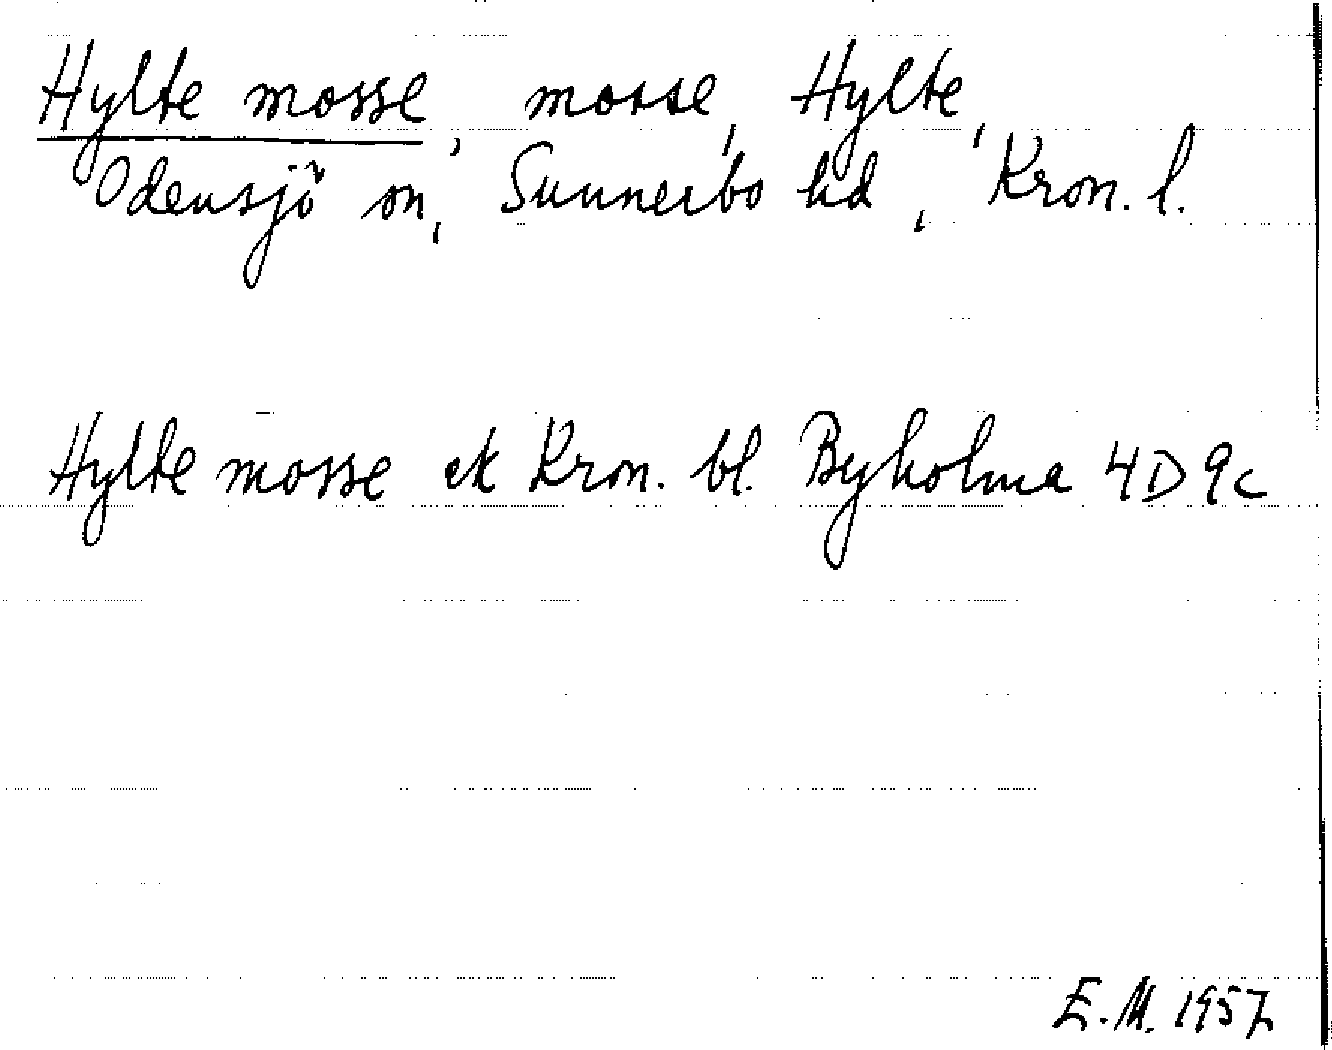 Hylte mosse, mosse, Hylte,
Odensjö sn, Sunnerbo hd, Kron. l.
Hylte mosse ek Kron. bl. Byholma 4D9c
E.M. 1957